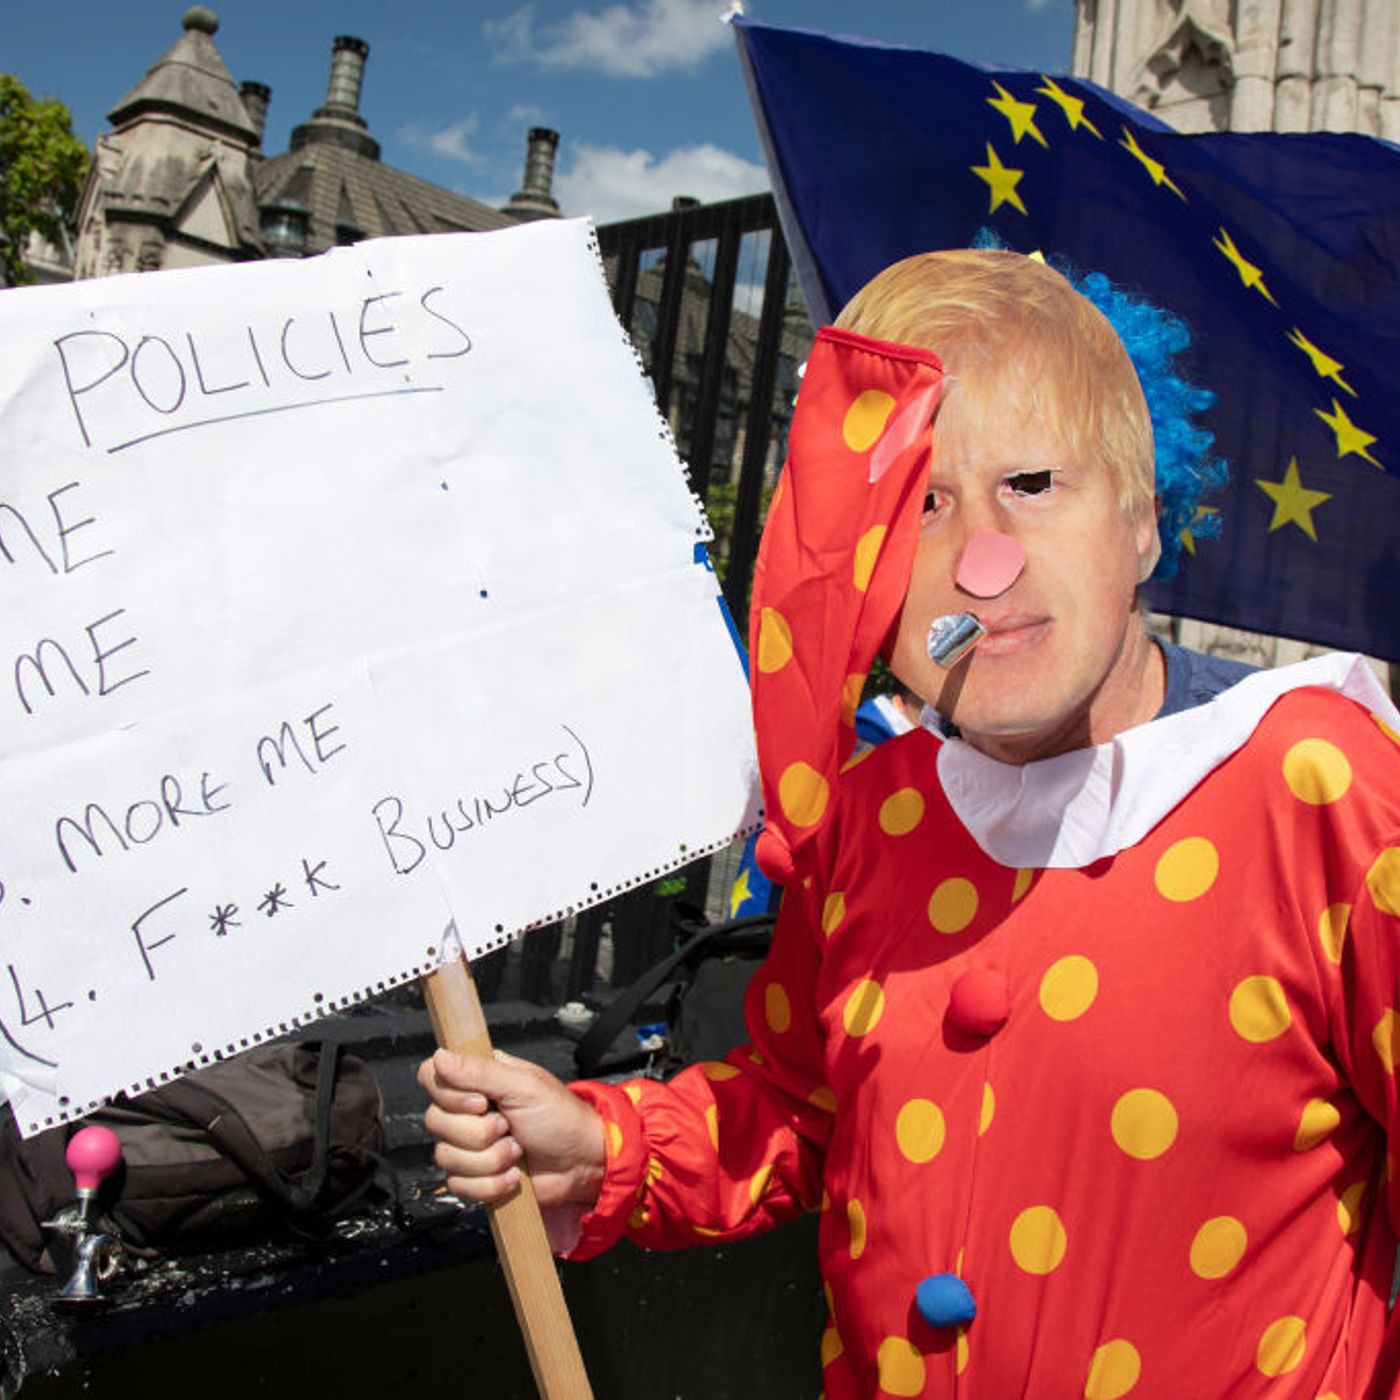 POLICIES
ME
ME
. MORE ME
(4. F**K BUSINESS)